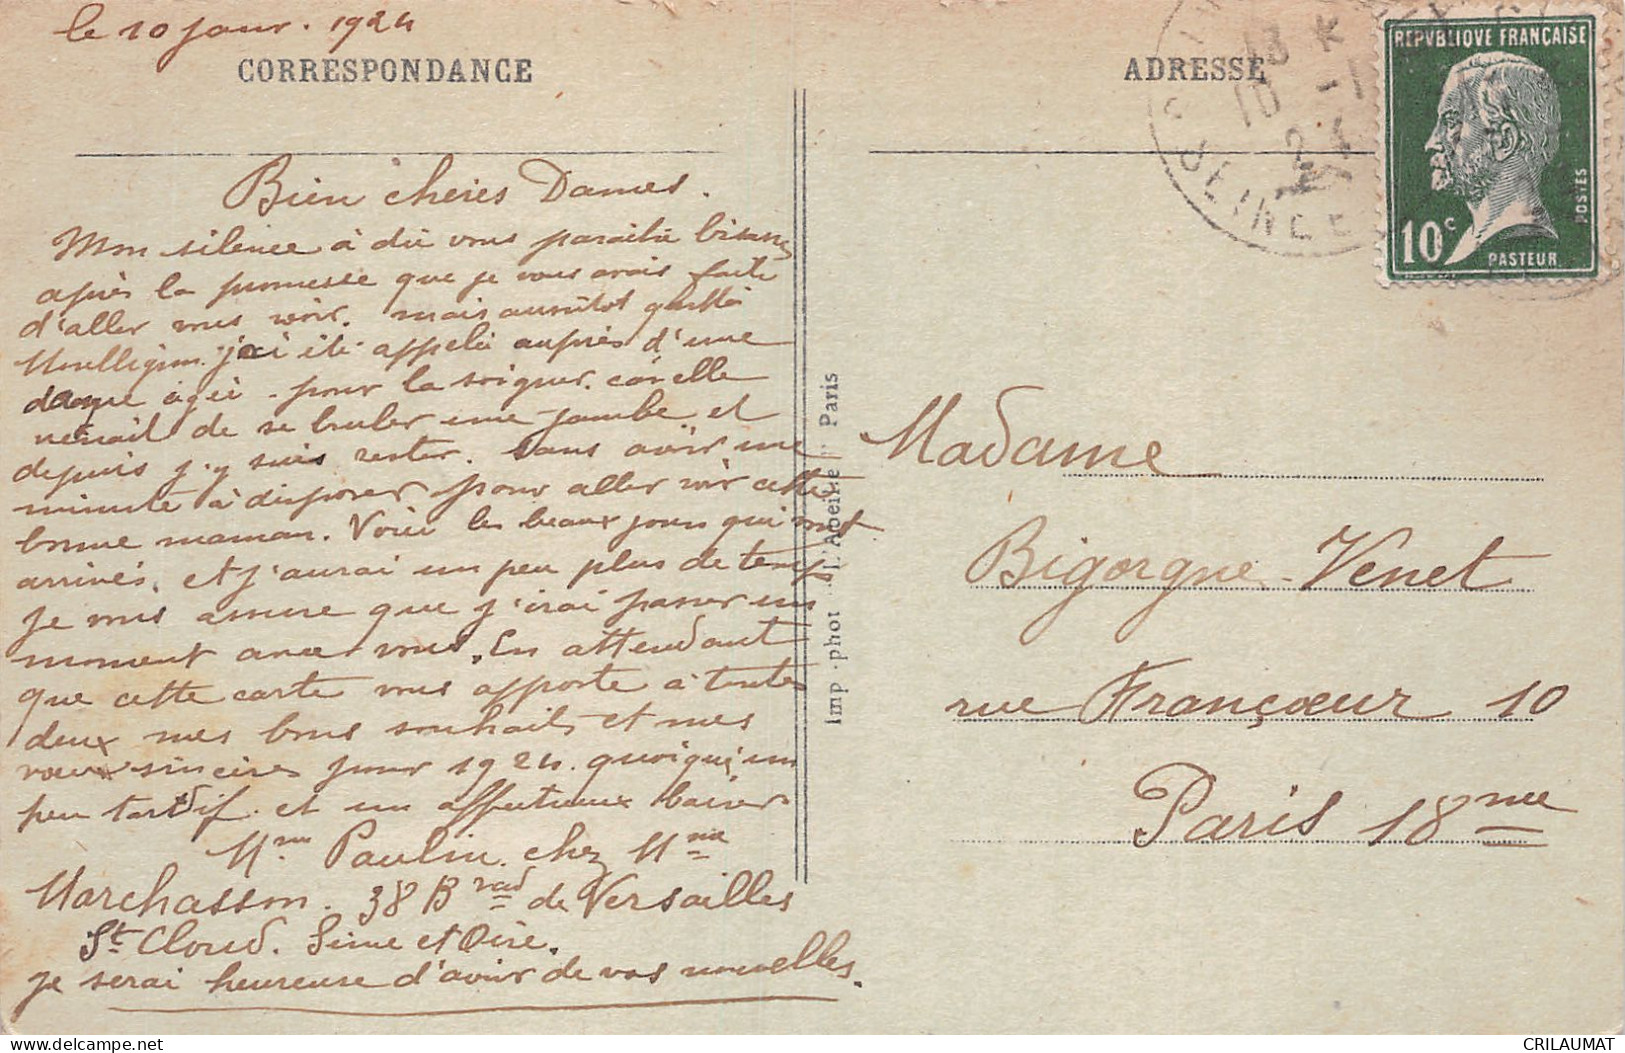 le 10 janv. 1924
CORRESPONDANCE
Bien chères Dames.
Mon silence a dû vous paraître bizarre
après la promesse que je vous avais faite
d'aller vous voir. mais aussitôt quitté
j'ai été appelée auprès d'une
dame âgée. pour la soigner. car elle
venait de se bruler une jambe et
depuis j'y suis rester. sans avoir une
minute à disposer pour aller voir cette
bonne maman. Voici les beaux jours qui vont
arrivés. et j'aurai un peu plus de temps
je vous assure que j'irai passer un
moment avec vous. En attendant
que cette carte vous apporte à toutes
deux mes bons souhaits et mes
vœux sincères pour 1924. quoiqu'un
peu tardif. et un affectueux baiser
Mme Paulin. chez Mme
Marchasson. 38 Bvard de Versailles
St Cloud. Seine et Oise.
je serai heureuse d'avoir de vos nouvelles.
Imp.-phot. "L'Abeille" Paris
ADRESSE
13 K
10 - 1
24
REPVBLIQVE FRANÇAISE
POSTES
10c
PASTEUR
Madame
Bigorgne-Venet
rue Francœur 10
Paris 18me
CRILAUMAT